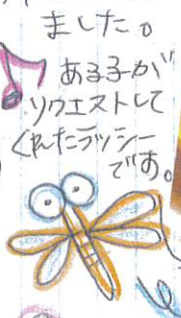 ました。
ある子が
リクエストして
くれたラッシー
です。